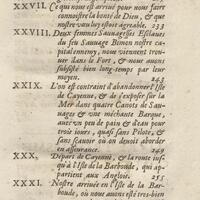 XXVII. Ce qui nous est arrivé pour nous faire
connoistre la bonté de Dieu, & que
nostre vœu luy estoit agreable. 233
XXVIII. Deux femmes Sauvagesses Esclaves
du feu Sauvage Bimon nostre ca-
pital ennemy, nous viennent trou-
uer dans le Fort, & nous ont
subsisté bien long-temps par leur
moyen. 243
XXIX. L'on est contraint d'abandonner l'Isle
de Cayenne, & de s'exposer sur la
Mer dans quatre Canots de Sauua-
ges & vne méchante Barque,
auec vn peu de pain & d'eau pour
trois iours, quasi sans Pilote, &
sans sçauoir où on deuoit aborder
en asseurance. 249
XXX. Départ de Cayenne, & la route ius-
qu'à l'Isle de la Barboude, qui ap-
partient aux Anglois. 255
XXXI. Nostre arriuée en l'Isle de la Bar-
boude, où nous auons esté tres-bien